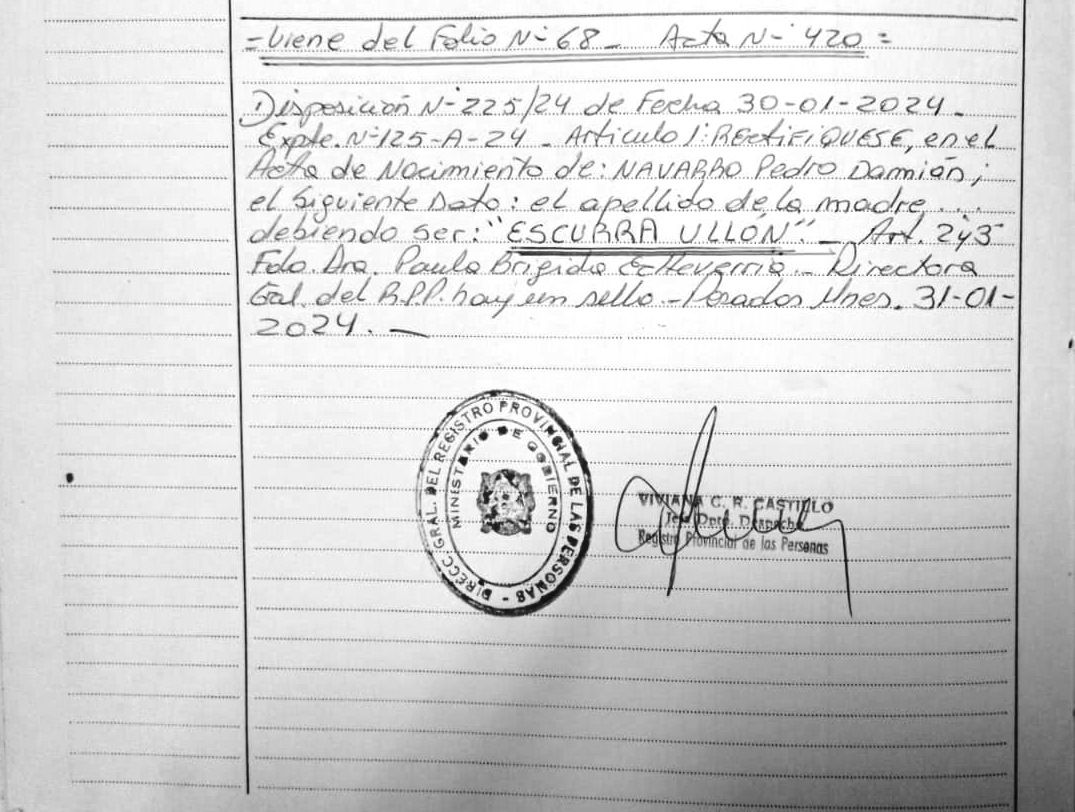 = Viene del Folio N- 68 - Acta N- 420 =
Disposición N- 225/24 de Fecha 30-01-2024 -
Expte. N- 125-A-24 - Articulo 1: RECTIFIQUESE, en el
Acta de Nacimiento de: NAVARRO Pedro Damián;
el Siguiente Dato: el apellido de la madre ....
debiendo ser: "ESCURRA ULLÓN". - Art. 2y3
Fdo. Dra. Paula Brigida Echeverria - Directora
Gral. del R.P.P. hay un sello - Posadas Mnes. 31-01-
2024. -
DIRECC. GRAL. DEL REGISTRO PROVINCIAL DE LAS PERSONAS -
MINISTERIO DE GOBIERNO
VIVIANA C. R. CASTILLO
Jefa Dpto. Despacho
Registro Provincial de las Personas